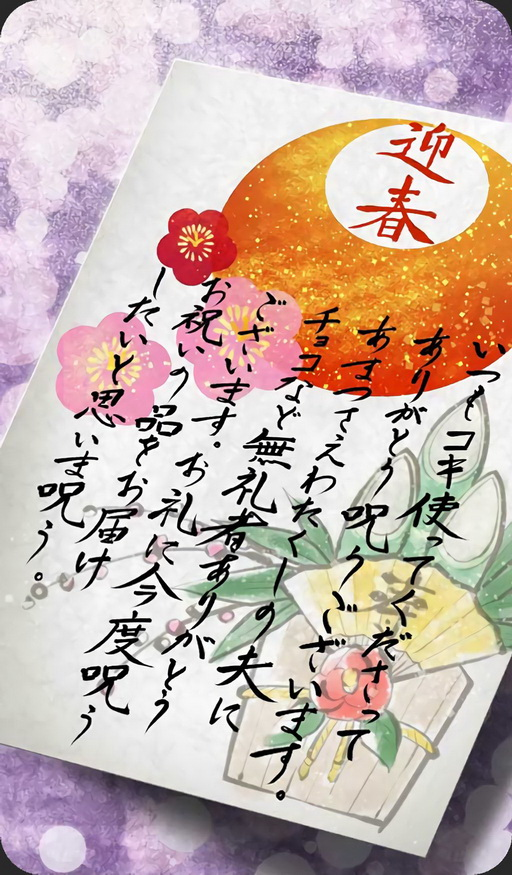 迎春
いつもコキ使ってくださって
ありがとう呪うございます。
あまつさえわたくしの夫に
チョコなど無礼者ありがとう
ございます。お礼に今度呪う
お祝いの品をお届け
したいと思いま呪う。